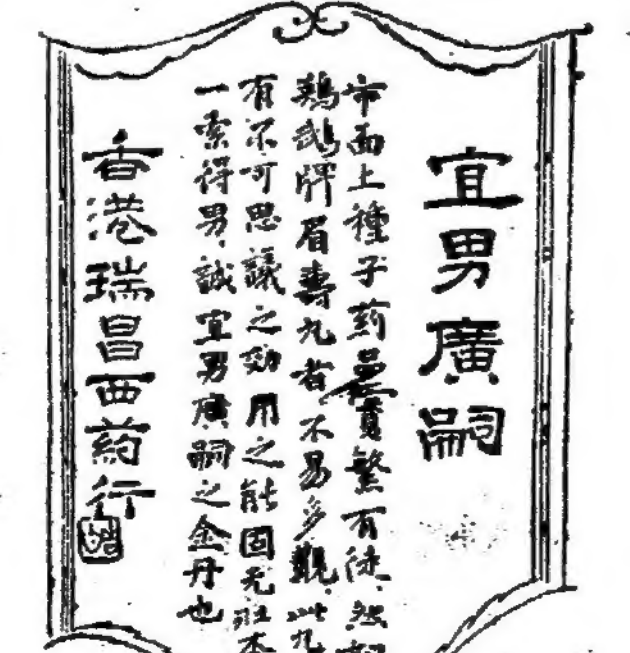 宜男廣嗣
市面上種子葯量實繁有徒、然
鷄鵝牌眉壽丸者、不易多覯、此丸
有不可思議之効、用之能固元壯本
一索得男、誠宜男廣嗣之金丹也
香港瑞昌西葯行